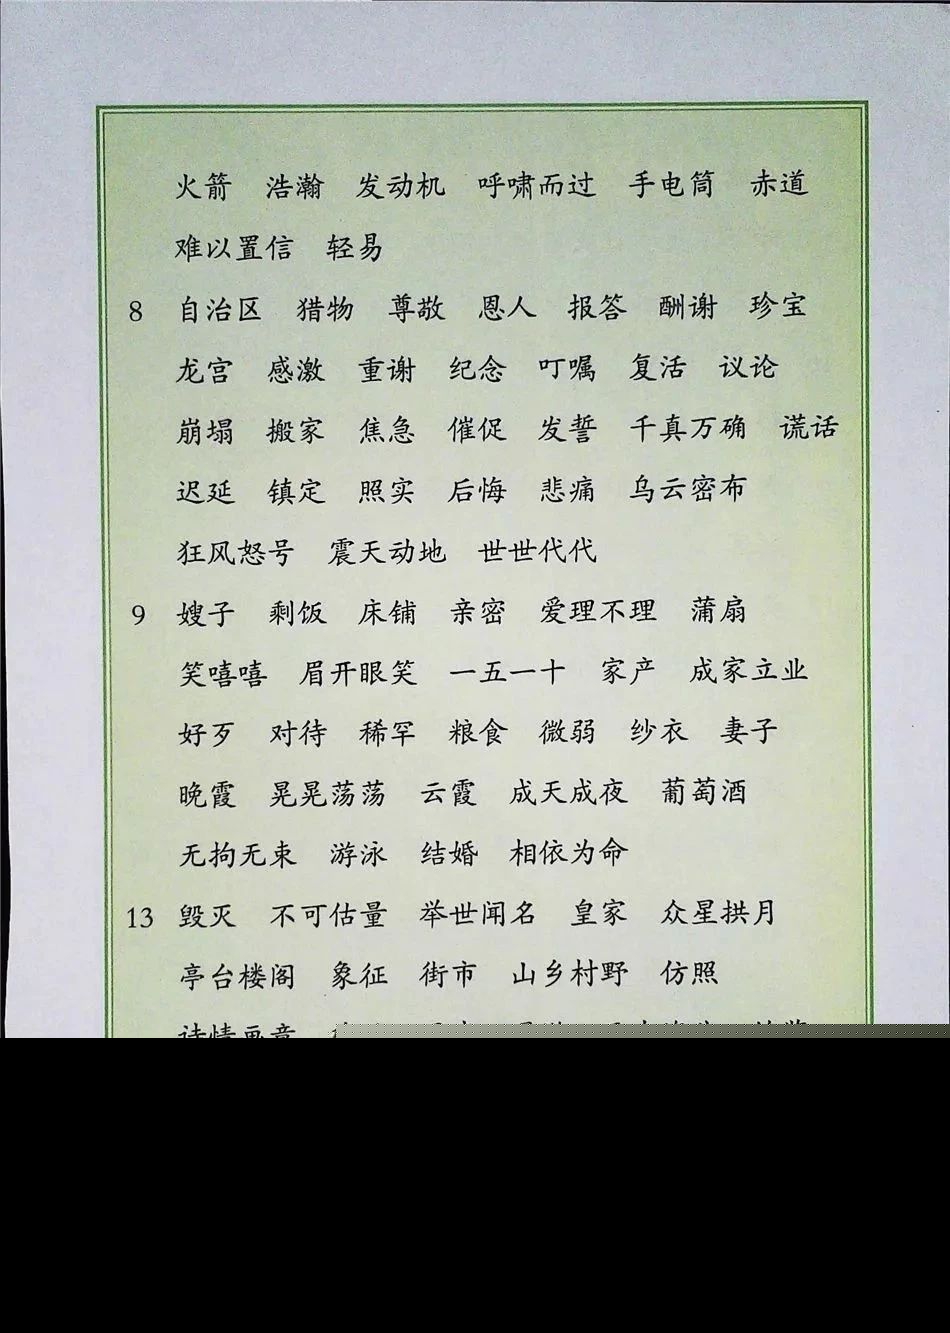 火箭 浩瀚 发动机 呼啸而过 手电筒 赤道
难以置信 轻易
8 自治区 猎物 尊敬 恩人 报答 酬谢 珍宝
龙宫 感激 重谢 纪念 叮嘱 复活 议论
崩塌 搬家 焦急 催促 发誓 千真万确 谎话
迟延 镇定 照实 后悔 悲痛 乌云密布
狂风怒号 震天动地 世世代代
9 嫂子 剩饭 床铺 亲密 爱理不理 蒲扇
笑嘻嘻 眉开眼笑 一五一十 家产 成家立业
好歹 对待 稀罕 粮食 微弱 纱衣 妻子
晚霞 晃晃荡荡 云霞 成天成夜 葡萄酒
无拘无束 游泳 结婚 相依为命
13 毁灭 不可估量 举世闻名 皇家 众星拱月
亭台楼阁 象征 街市 山乡村野 仿照
诗情画意